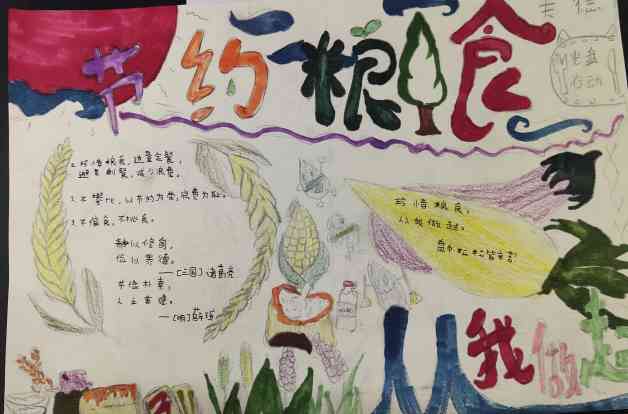 节约粮食
光盘
行动
1. 珍惜粮食,适量定餐,
避免剩餐,减少浪费。
2. 不攀比,以节约为荣,浪费为耻。
3. 不偏食,不挑食。
静以修身,
俭以养德。
——[三国]诸葛亮
节俭朴素,
人之美德。
——[明]薛瑄
珍惜粮食,
从我做起。
从我做起